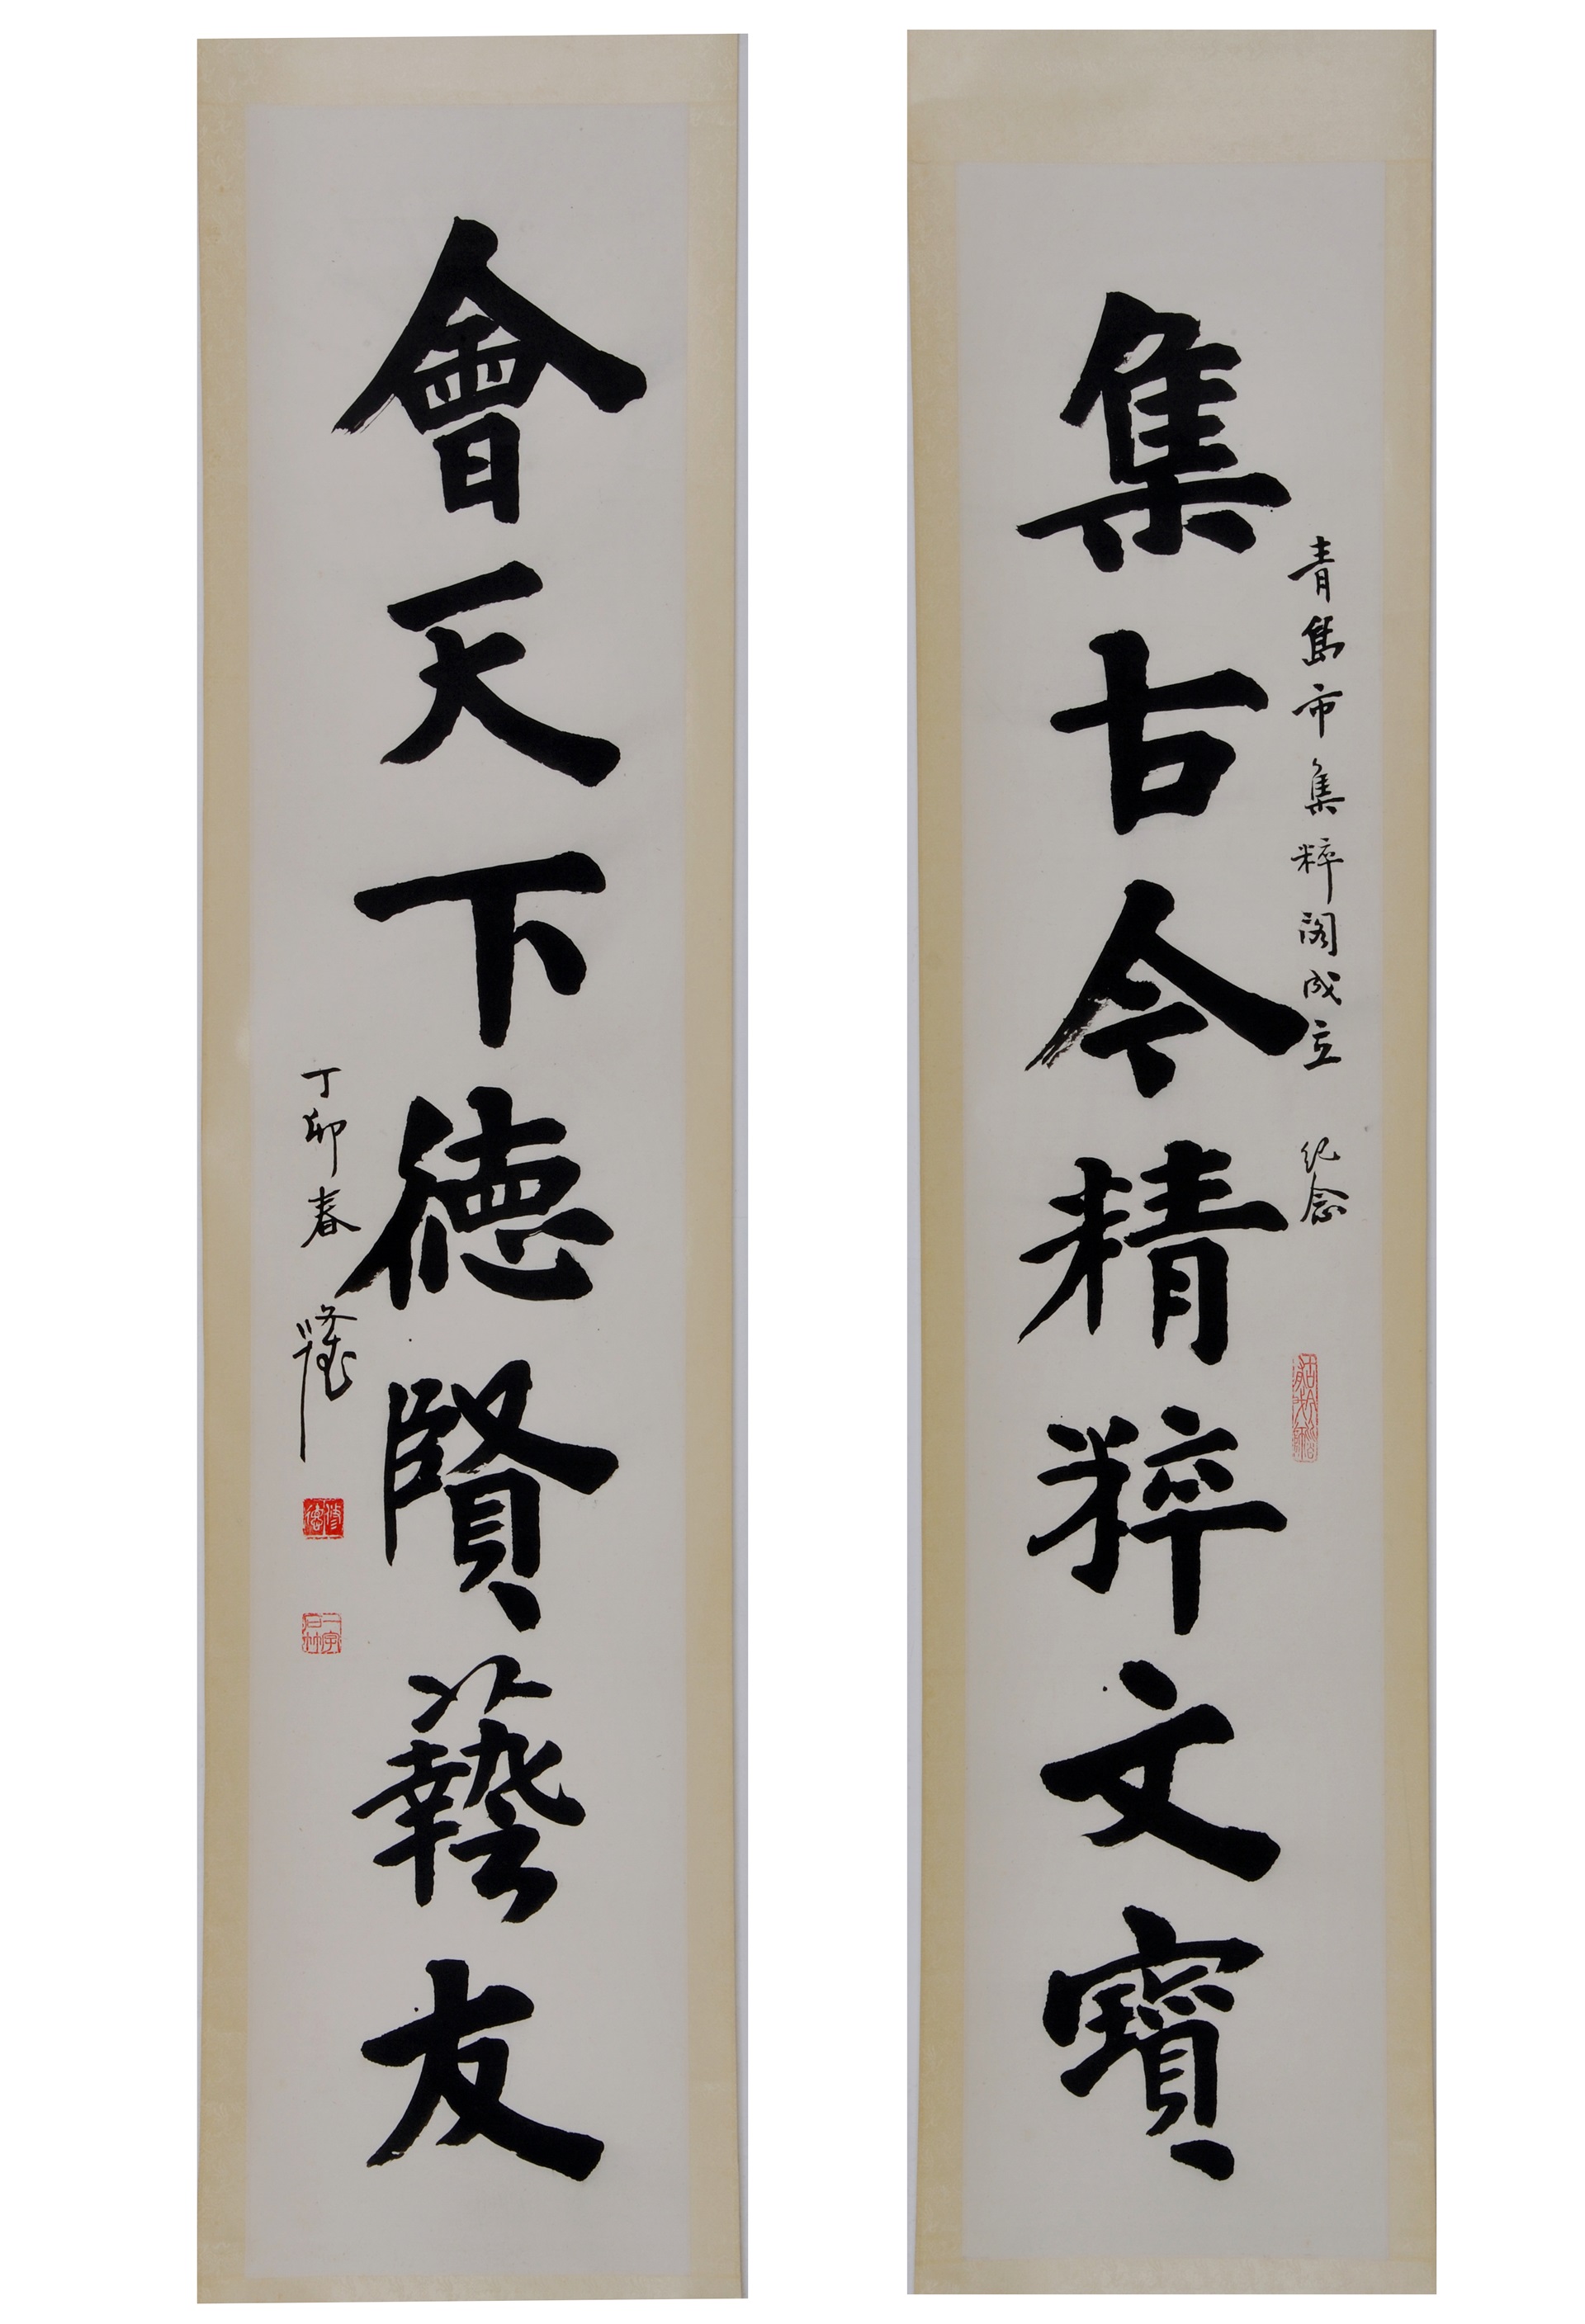 青島市集粹阁成立 纪念
集古今精粹文寶
會天下德賢藝友
丁卯春
修德